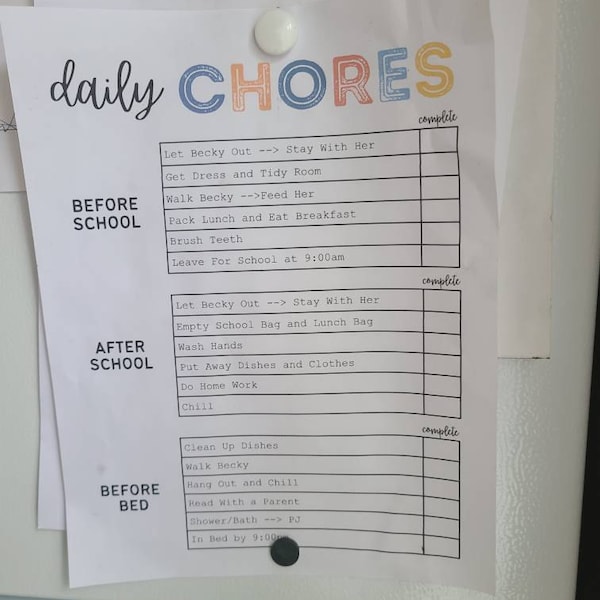 daily CHORES
complete
BEFORE SCHOOL
Let Becky Out --> Stay With Her
Get Dress and Tidy Room
Walk Becky -->Feed Her
Pack Lunch and Eat Breakfast
Brush Teeth
Leave For School at 9:00am
complete
AFTER SCHOOL
Let Becky Out --> Stay With Her
Empty School Bag and Lunch Bag
Wash Hands
Put Away Dishes and Clothes
Do Home Work
Chill
complete
BEFORE BED
Clean Up Dishes
Walk Becky
Hang Out and Chill
Read With a Parent
Shower/Bath --> PJ
In Bed by 9:00pm